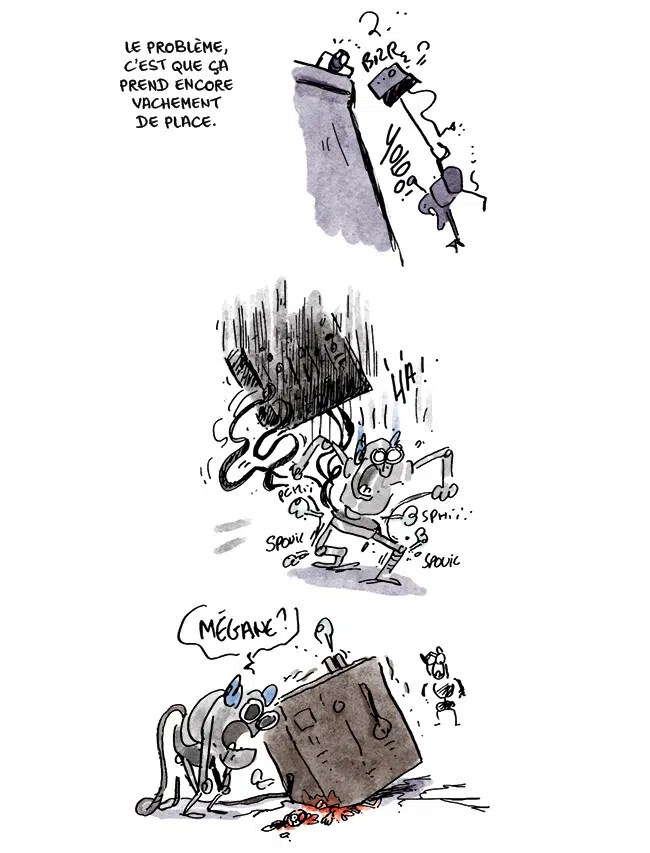 LE PROBLÈME,
C'EST QUE ÇA
PREND ENCORE
VACHEMENT
DE PLACE.
?
BIZR ?
HA!
PCHii
SPHii
SPOUIC
SPOUIC
MÉGANE?